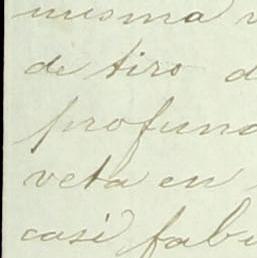 misma
de tiro d
profund
veta en
casi fabu